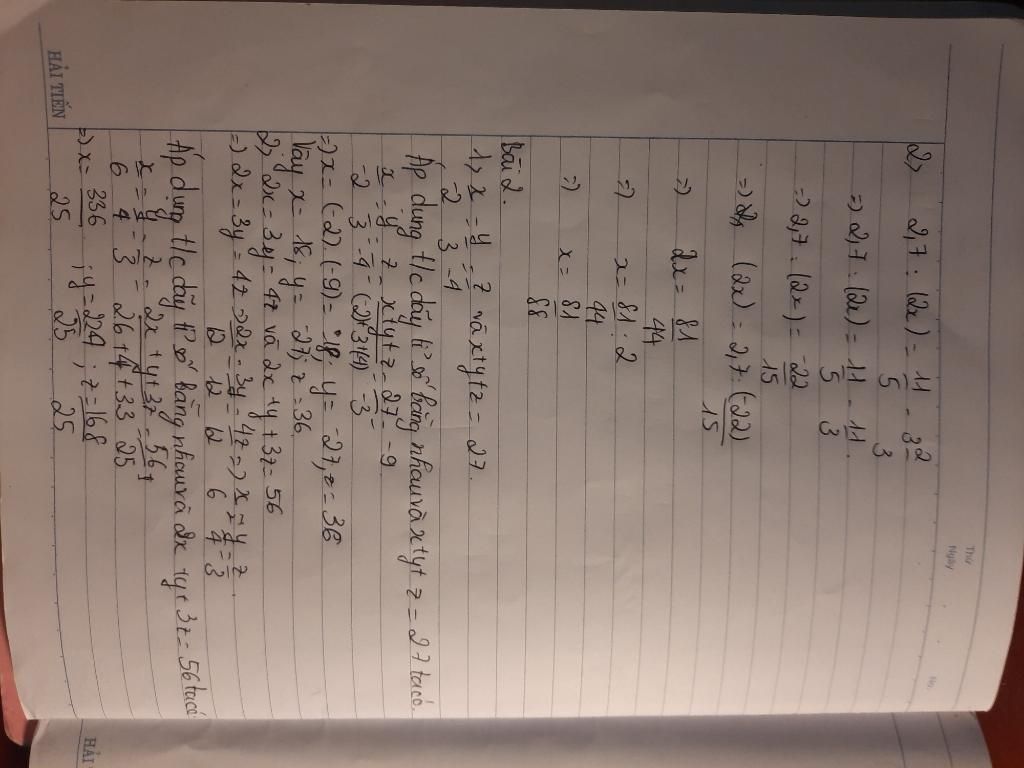 Thứ
Ngày
No.
2> 2,7 : (2x) = 11/5 - 3 2/3
=> 2,7 : (2x) = 11/5 - 11/3.
=> 2,7 : (2x) = -22/15
=> (2x) = 2,7 . (22)/15
=> 2x = 81/44
=> x = 81/44 : 2
=> x = 81/88
Bài 2.
1> x/-2 = y/3 = z/-4 và x+y+z = 27.
Áp dụng t/c dãy tỉ số bằng nhau và x+y+z = 27 ta có.
x/-2 = y/3 = z/-4 = x+y+z/(-2)+3+(-4) = 27/-3 = -9
=> x = (-2).(-9) = 18; y = -27; z = 36
Vậy x = 18; y = -27; z = 36
2> 2x = 3y = 4z và 2x + y + 3z = 56
=> 2x = 3y = 4z => 2x/12 = 3y/12 = 4z/12 => x/6 = y/4 = z/3.
Áp dụng t/c dãy tỉ số bằng nhau và 2x + y + 3z = 56 ta có
x/6 = y/4 = z/3 = 2x + y + 3z/26 + 4 + 33 = 56/25
=> x = 336/25; y = 224/25; z = 168/25
HẢI TIẾN
HẢI